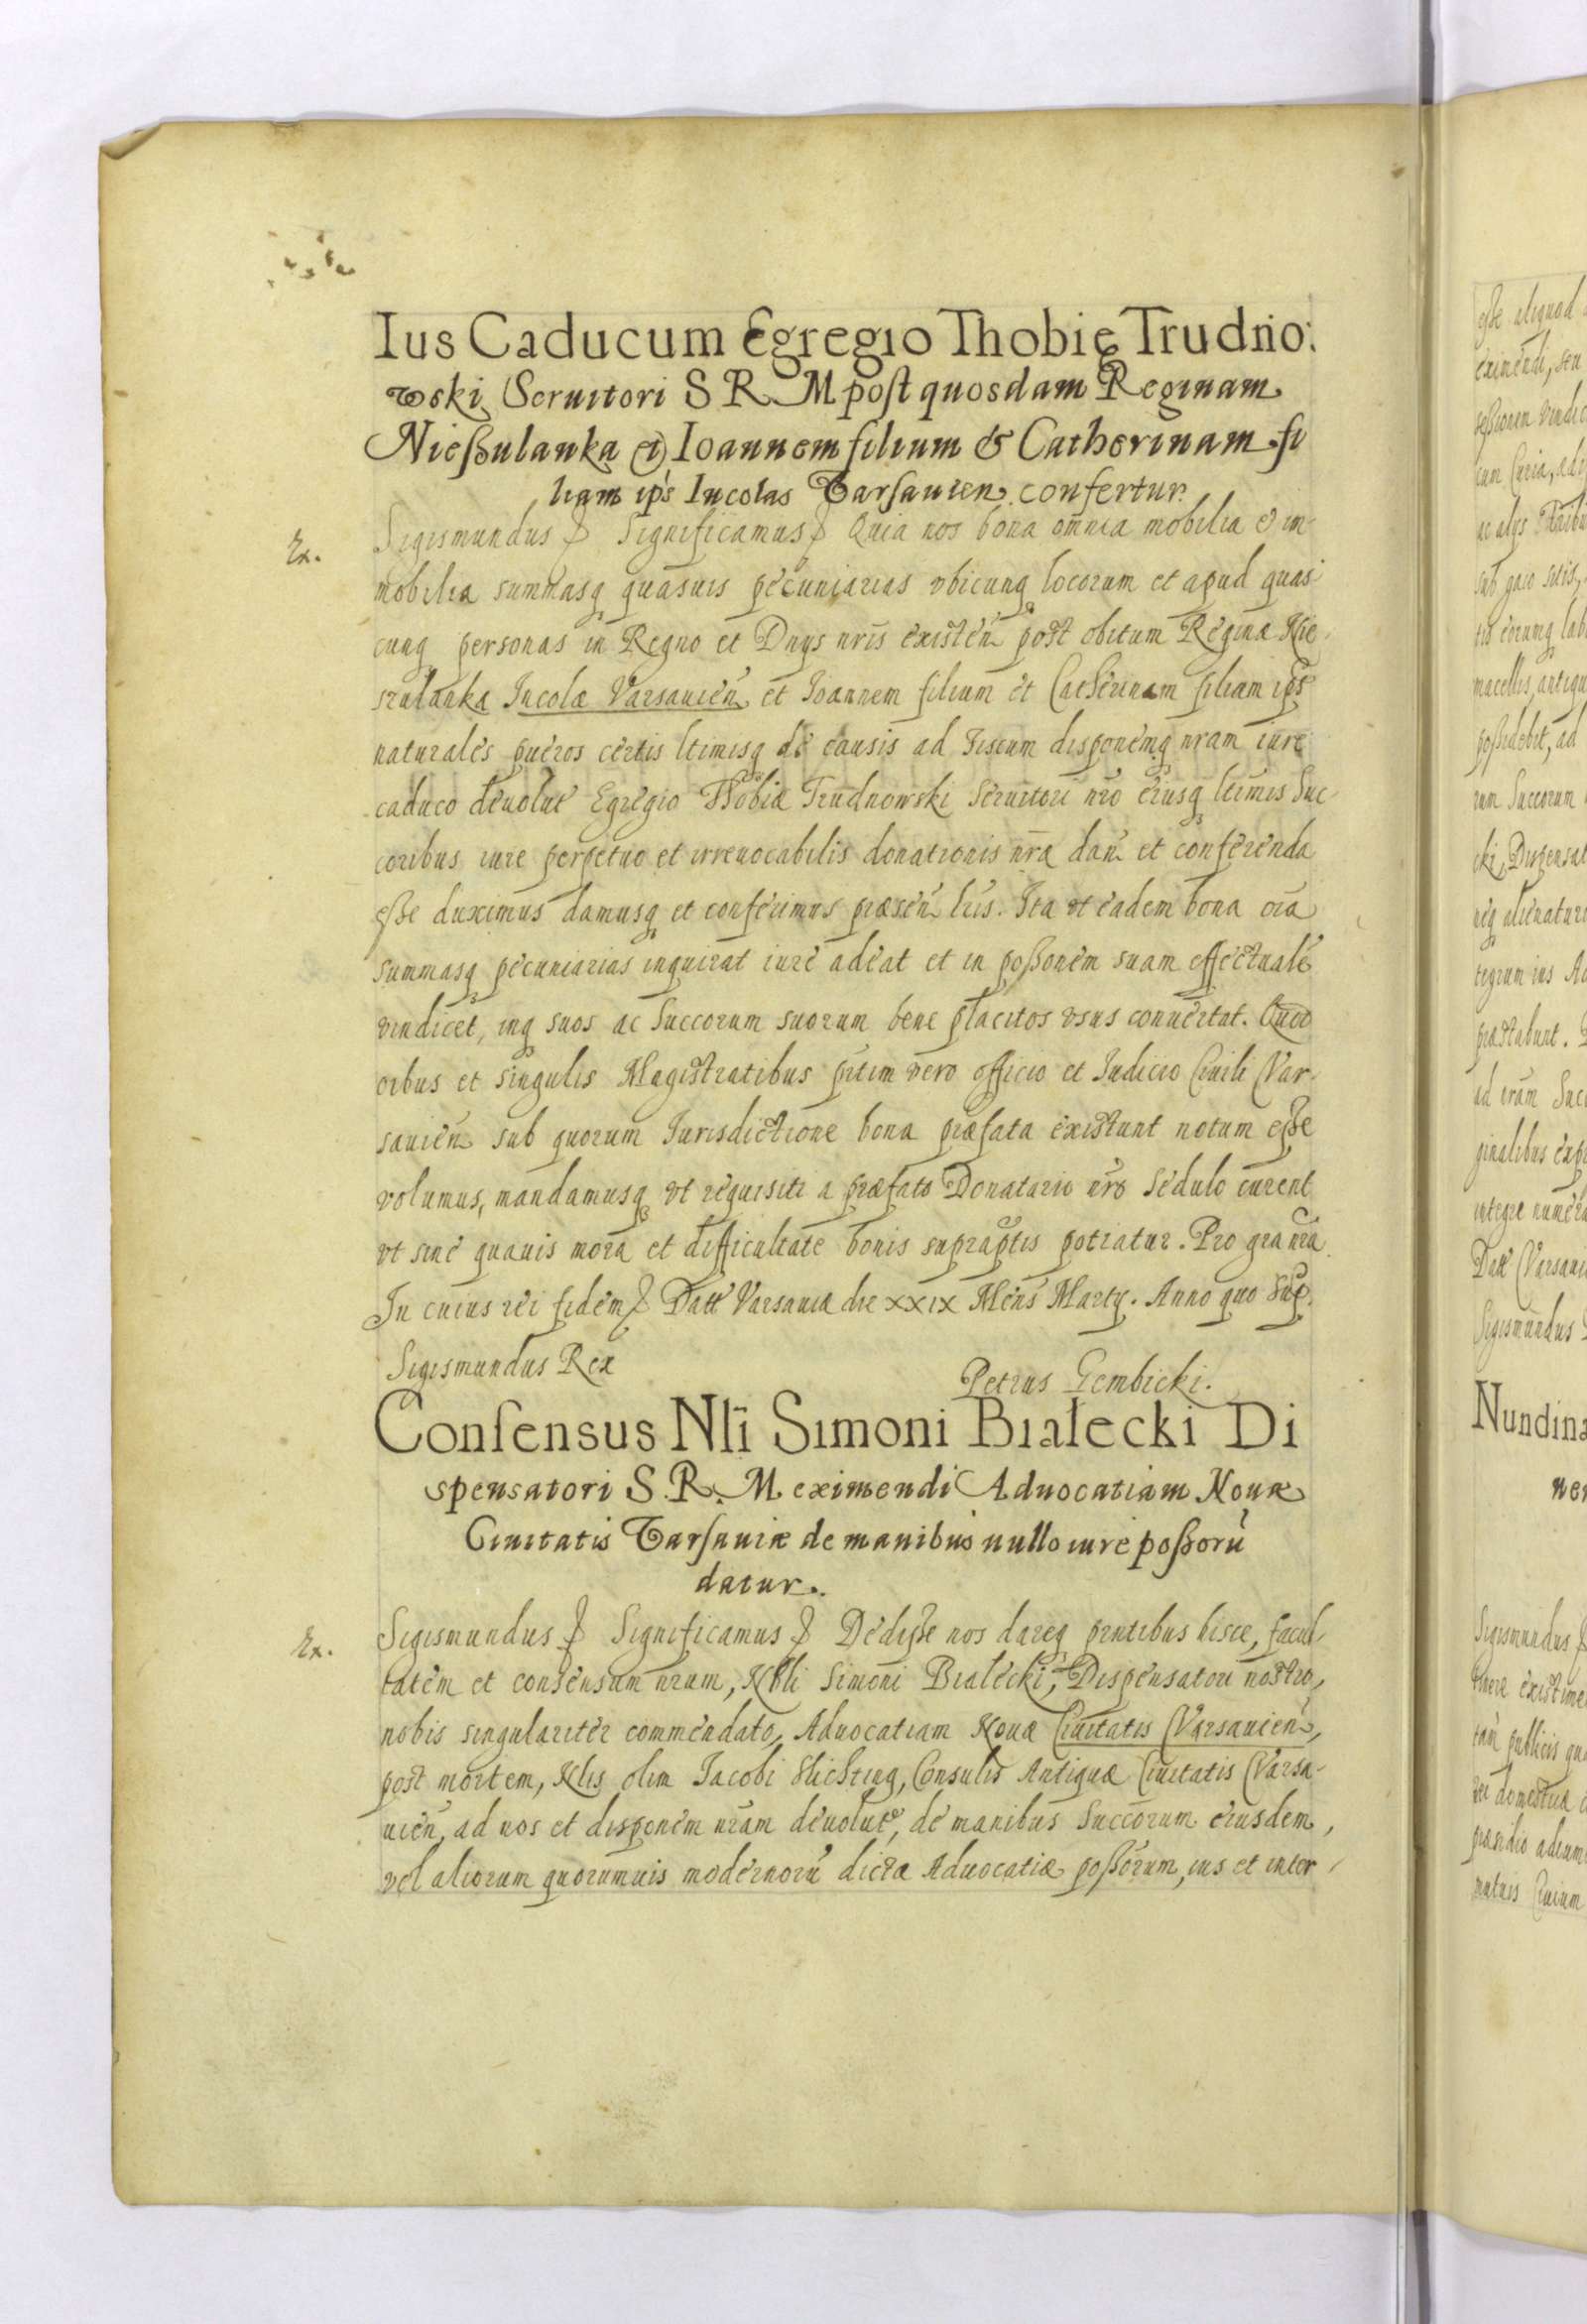 Ius Caducum Egregio Thobię Trudno:
wski Seruitori S R M post quosdam Reginam
Nießulanka et Ioannem filium & Catherinam fi
liam ips Incolas Varsauien confertur
Ex.
Sigismundus Significamus Quia nos bona omnia mobilia et im
mobilia summasq quasuis pecuniarias vbicunq locorum et apud quas
cunq personas in Regno et Dnys nris existen post obitum Reginæ Nie
szulanka Incolæ Varsauien et Ioannem filium et Catherinam filiam ips
naturales pueros certis ltimisq de causis ad Fiscum disponemq nram iure
caduco deuolut Egregio Thobiæ Trudnowski Seruitori nro eiusq ltimis Suc
coribus iure perpetuo et irreuocabilis donationis nra dan et conferenda
esse duximus damusq et conferimus præsen lris. Ita vt eadem bona oia
summasq pecuniarias inquirat iure adeat et in possonem suam effectuale
vindicet, inq suos ac Succorum suorum bene placitos vsus conuertat. Quod
oibus et singulis Magistratibus pitim vero officio et Iudicio Ciuili Var
sauien sub quorum Iurisdictione bona præfata existunt notum esse
volumus, mandamusq vt requisiti a præfato Donatario nro sedulo curent
vt sine quauis mora et difficultate bonis supraptis potiatur. Pro gra nra
In cuius rei fidem Datt Varsauiæ die XXIX Mens Marty. Anno quo Sup.
Sigismundus Rex
Petrus Gembicki.
Consensus Nli Simoni Białecki Di
spensatori S. R. M eximendi Aduocatiam Nouæ
Ciuitatis Varsauiæ de manibus nullo iure possorũ
datur.
Ex.
Sigismundus Significamus Dedisse nos dareq pntibus hisce, facul
tatem et consensum nrum, Nbli Simoni Białecki, Dispensatori nostro,
nobis singulariter commendato, Aduocatiam Nouæ Ciuitatis Varsauien,
post mortem, Nlis olim Jacobi Slichting, Consulis Antiquæ Ciuitatis Varsa-
uien, ad nos et disponem nram deuolut, de manibus Succorum eiusdem,
vel aliorum quorumuis modernorũ dictæ Aduocatiæ possorum, ius et inter
esse aliquod
eximendi, seu
sessiorem vindic
cum Curia,
sub gaio sitis,
macellis, antiqu
possidebit, ad
rum Succorum
cki, Dispensat
neq alienatur
tegrum ius Ad
præstabunt.
ginalibus
integre numera
Datt Varsaui
Sigismundus
Nundina
ner
Sigismundus
tinere existime
tam publicis qua
rei domestica
præsidio
mutuis Ciuium